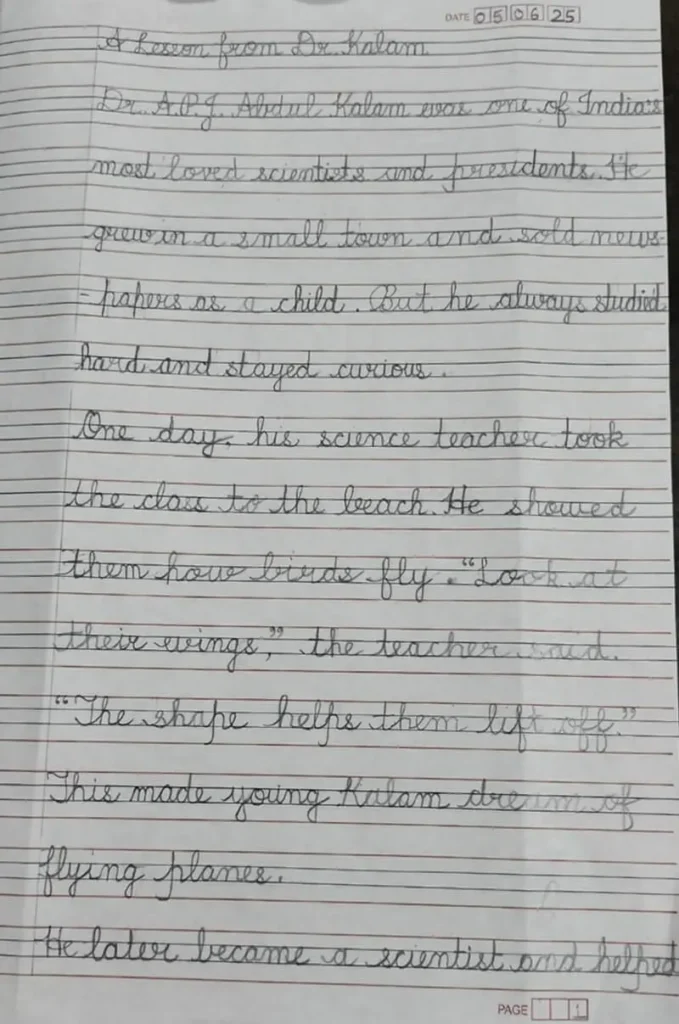 DATE 05 06 25
A Lesson from Dr. Kalam
Dr. A.P.J. Abdul Kalam was one of India's
most loved scientists and presidents. He
grew in a small town and sold news-
-papers as a child. But he always studied
hard and stayed curious.
One day, his science teacher took
the class to the beach. He showed
them how birds fly. "Look at
their wings," the teacher said.
"The shape helps them lift off."
This made young Kalam dream of
flying planes.
He later became a scientist and helped
PAGE 1